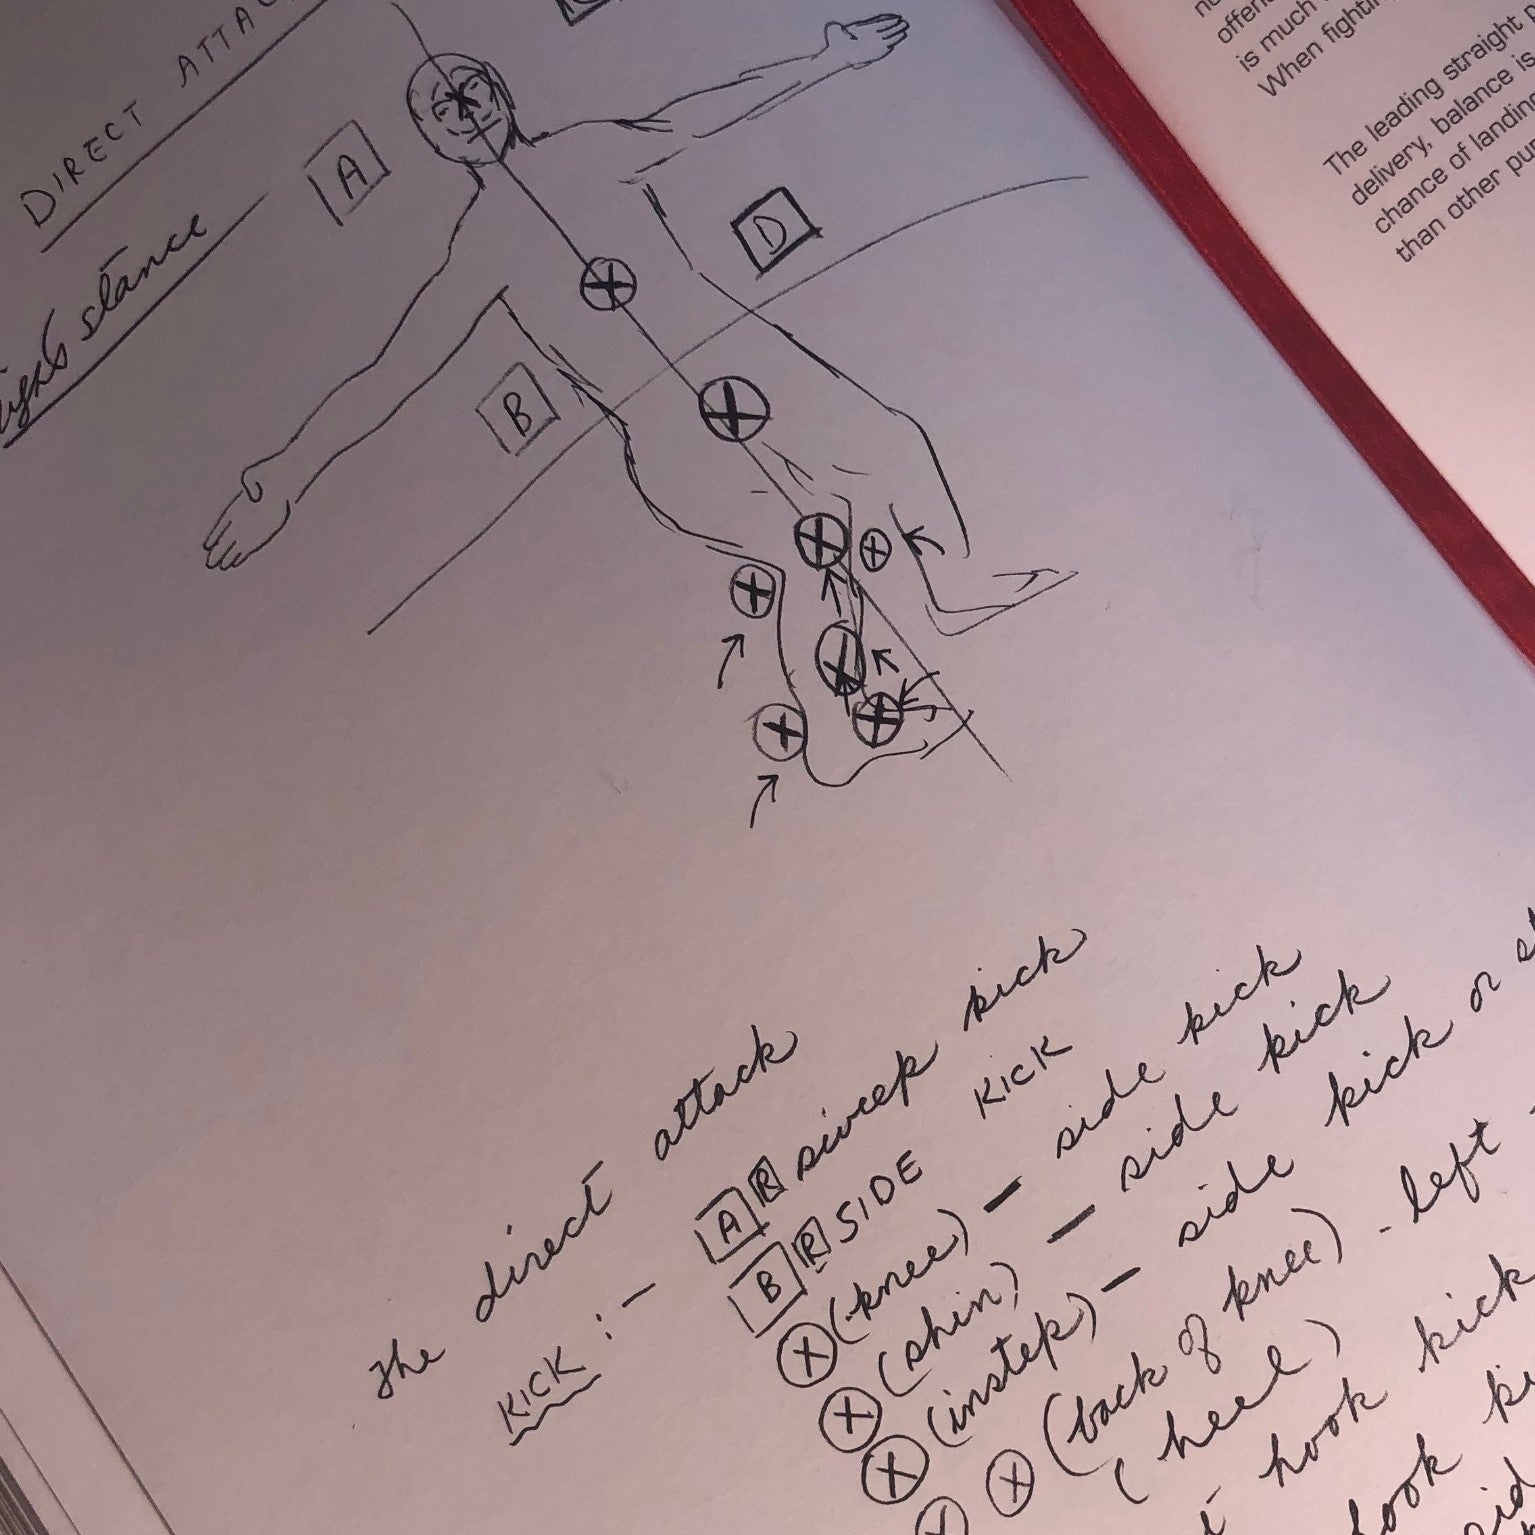 DIRECT ATTAC
stance
A
D
B
the direct attack
KICK :- A R sweep kick
B R SIDE KICK
X (knee) - side kick
X (shin) - side kick
X (instep) - side kick or
X (back of knee) - left
X (heel)
hook kick
hook
offen
is much
When fightin
The leading straight
delivery, balance is
chance of landin
than other pu